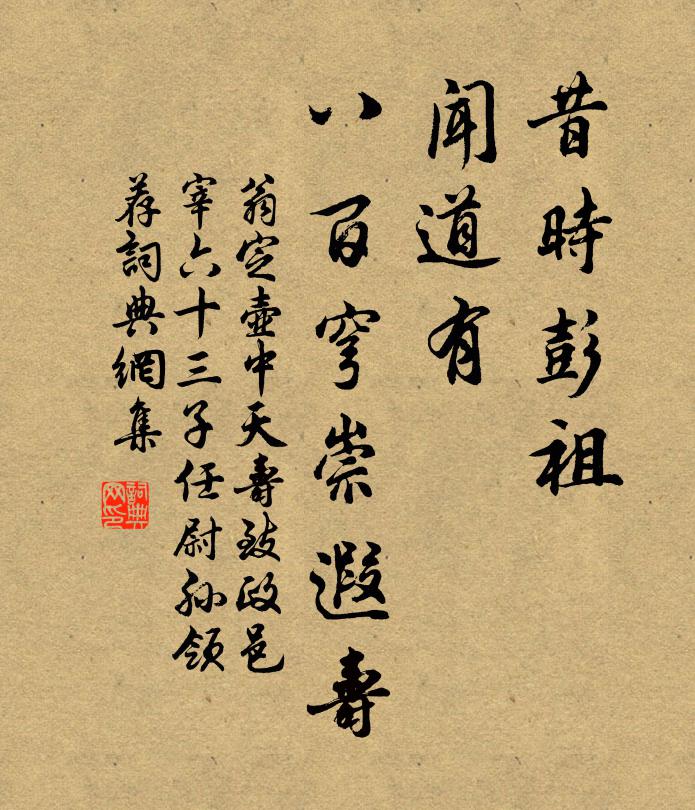 昔時彭祖
闻道有
八百穹崇遐壽
翁定壺中天壽致政邑
宰六十三子任尉孙領
荐詞典網集
詞典
网印